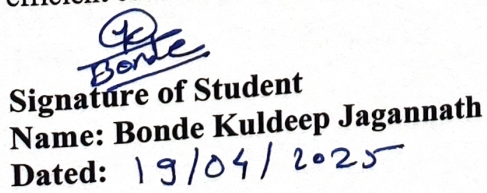 Bonde
Signature of Student
Name: Bonde Kuldeep Jagannath
Dated: 19/04/2025